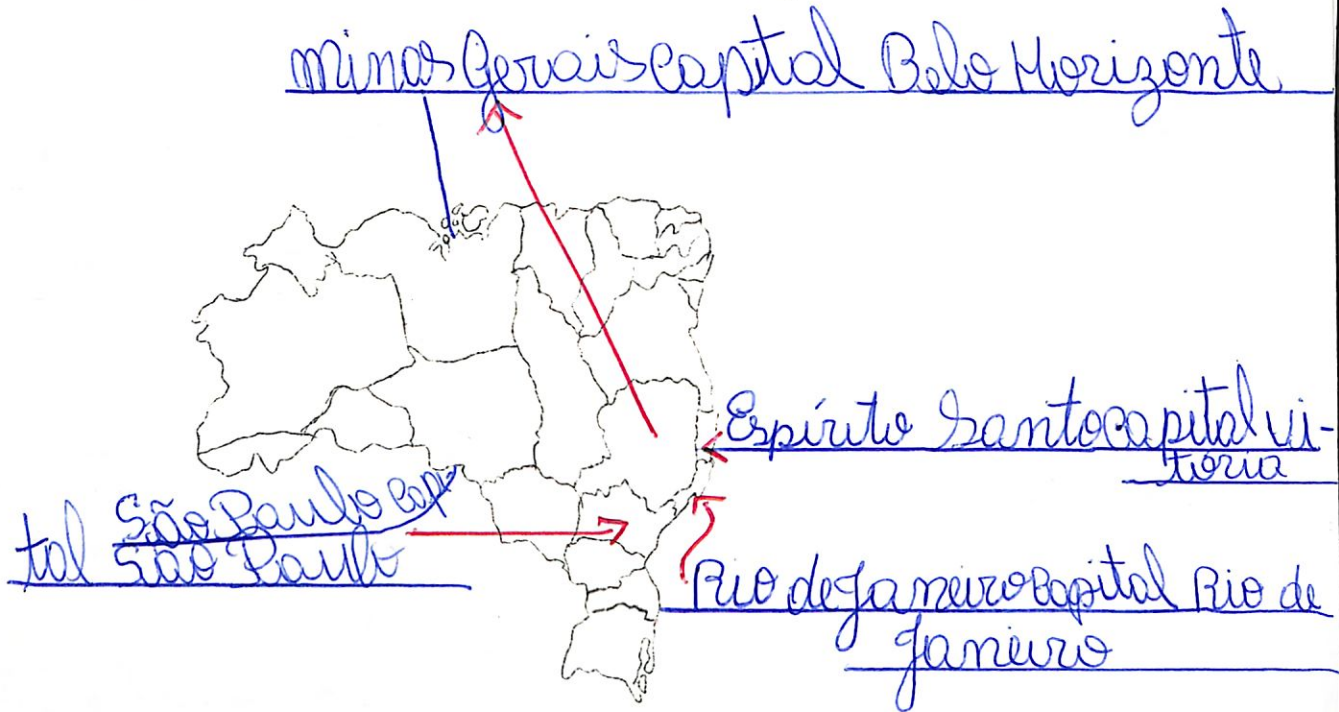 Minas Gerais Capital Belo Horizonte
Espírito Santo capital Vi-
tória
São Paulo Capi
tal São Paulo
Rio de Janeiro Capital Rio de
Janeiro